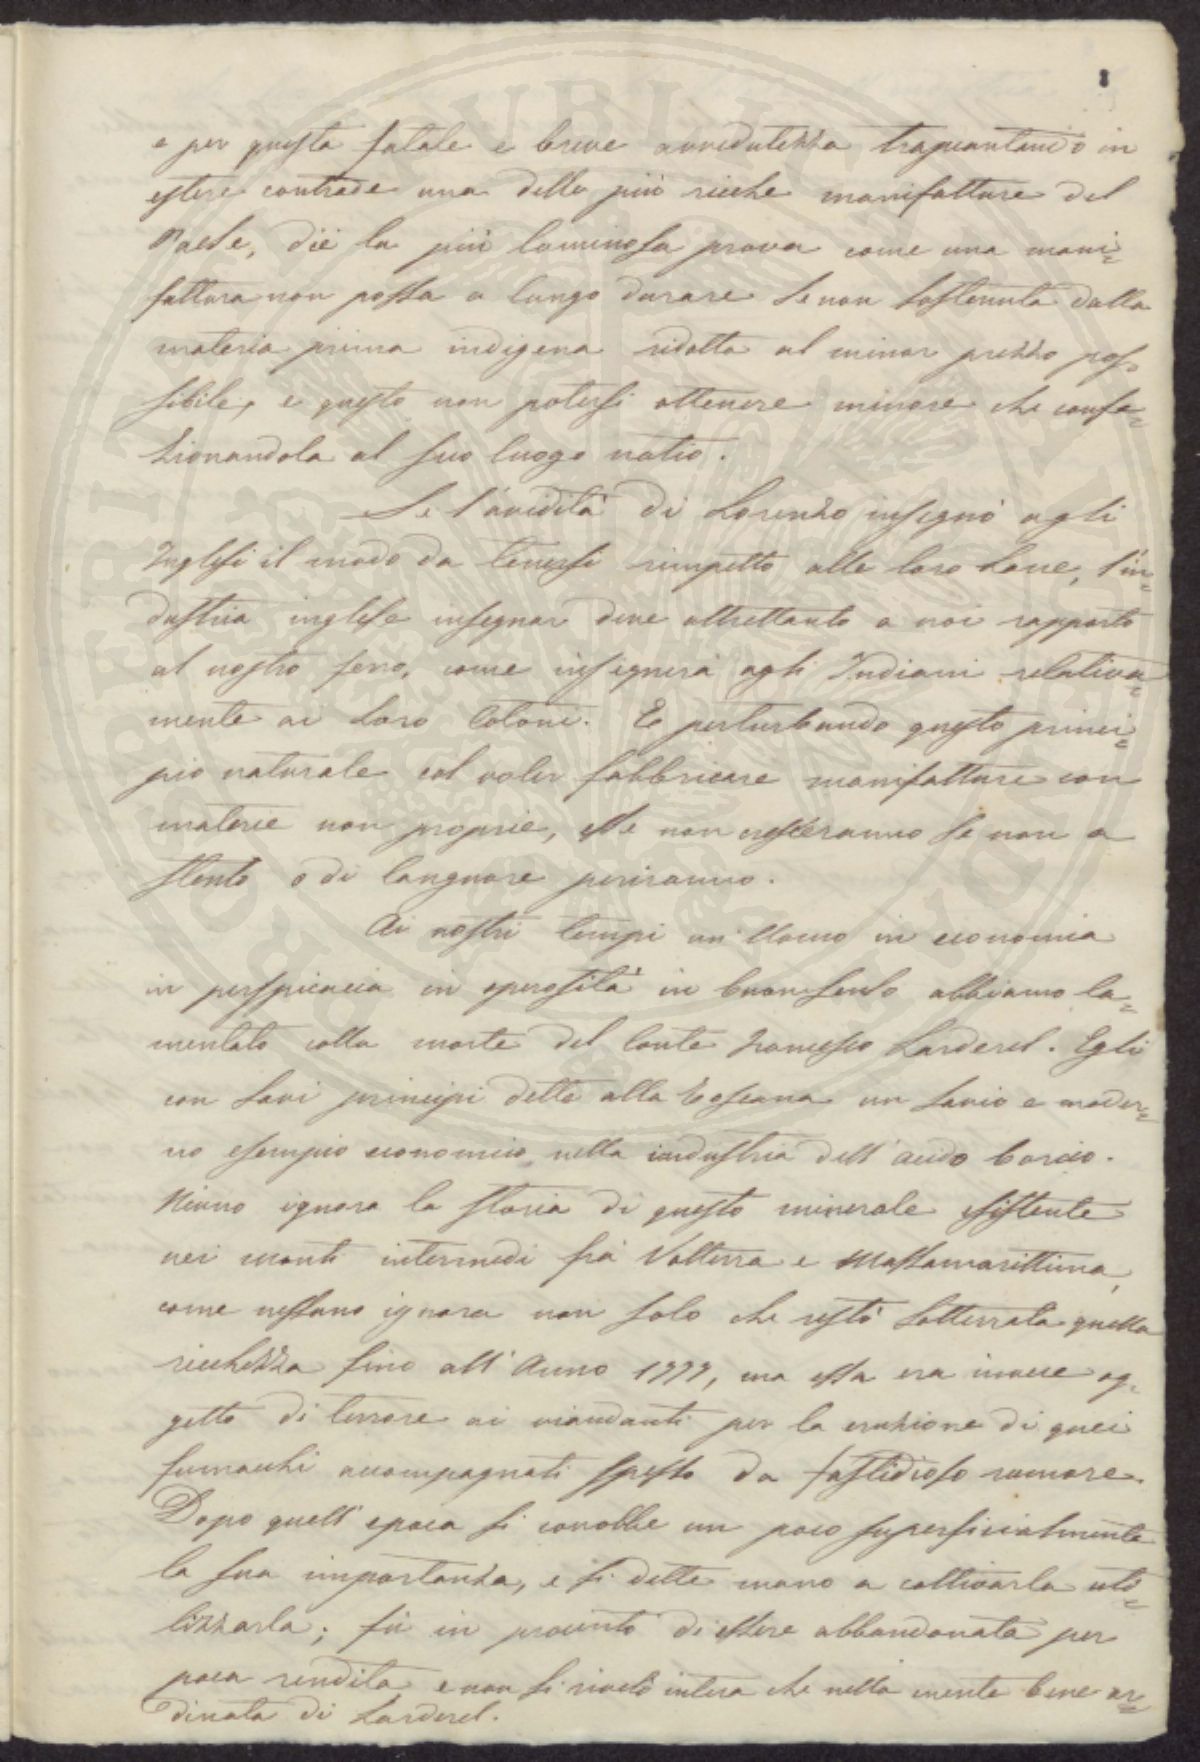 8
e per questa fatale e breve avvedutezza trapiantando in
estere contrade una delle più ricche manifatture del
Paese, diè la più luminosa prova come una mani=
fattura non possa a lungo durare se non sostenuta dalla
materia prima indigena ridotta al minor prezzo pos=
sibile, e questo non potersi ottenere minore che confe=
zionandola al suo luogo natio.
Se l'avidità di Lorenzo insegnò agli
Inglesi il modo da tenersi rimpetto alle loro Lane, l'in=
dustria inglese insegnar deve altrettanto a noi rapporto
al nostro ferro, come insegnerà agli Indiani relativa=
mente ai loro Cotoni. E perturbando questo princi=
pio naturale col voler fabbricare manifatture con
materie non proprie, esse non esisteranno se non a
stento o di languore periranno.
Ai nostri tempi un'Uomo in economia
in perspicacia in operosità in buonsenso abbiamo la=
mentato colla morte del Conte Francesco Larderel. Egli
con savi principi dette alla Toscana un savio e moder=
no esempio economico nella industria dell'acido borico.
Niuno ignora la storia di questo minerale esistente
nei monti intermedi frà Volterra e Massamarittima,
come nessuno ignora non solo che restò sotterrata quella
ricchezza fino all'Anno 1777, ma essa era invece og=
getto di terrore ai viandanti per la eruzione di quei
fumacchi accompagnati spesso da fastidioso rumore.
Dopo quell'epoca si conobbe un poco superficialmente
la sua importanza, e si dette mano a coltivarla uti=
lizzarla; fù in procinto di essere abbandonata per
poca rendita e non si rivelò intera che nella mente bene or=
dinata di Larderel.